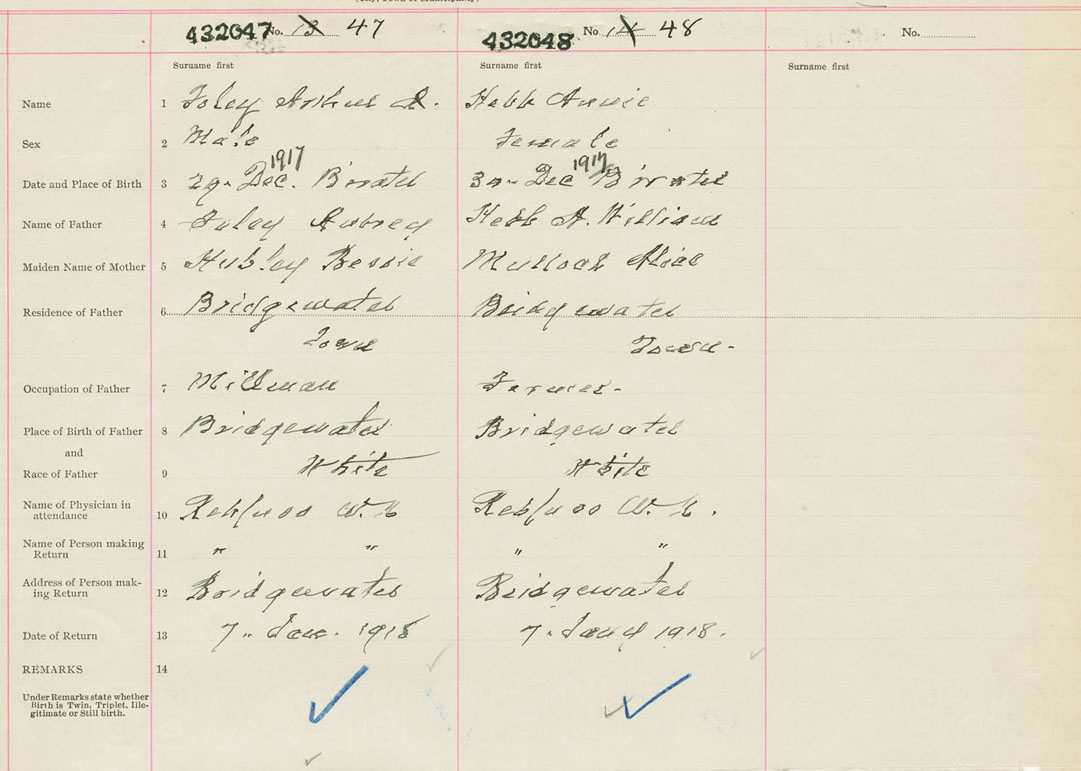 432047 No. 13 47
432048 No 14 48
No.
Surname first
Surname first
Surname first
Name 1 Foley Arthur A. Hebb Annie
Sex 2 Male Female
1917 1917
Date and Place of Birth 3 29 Dec. B'water 30 Dec B'water
Name of Father 4 Foley Aubrey Hebb A. William
Maiden Name of Mother 5 Hubley Bessie Mullock Alice
Residence of Father 6 Bridgewater Bridgewater
Town Town -
Occupation of Father 7 Millman Farmer -
Place of Birth of Father 8 Bridgewater Bridgewater
and
Race of Father 9 White White
Name of Physician in
attendance 10 Rehfuss W. N Rehfuss W. N.
Name of Person making
Return 11 " " " "
Address of Person mak-
ing Return 12 Bridgewater Bridgewater
Date of Return 13 7 Jan. 1918 7 Jany 1918.
REMARKS 14
Under Remarks state whether
Birth is Twin, Triplet, Ille-
gitimate or Still birth.